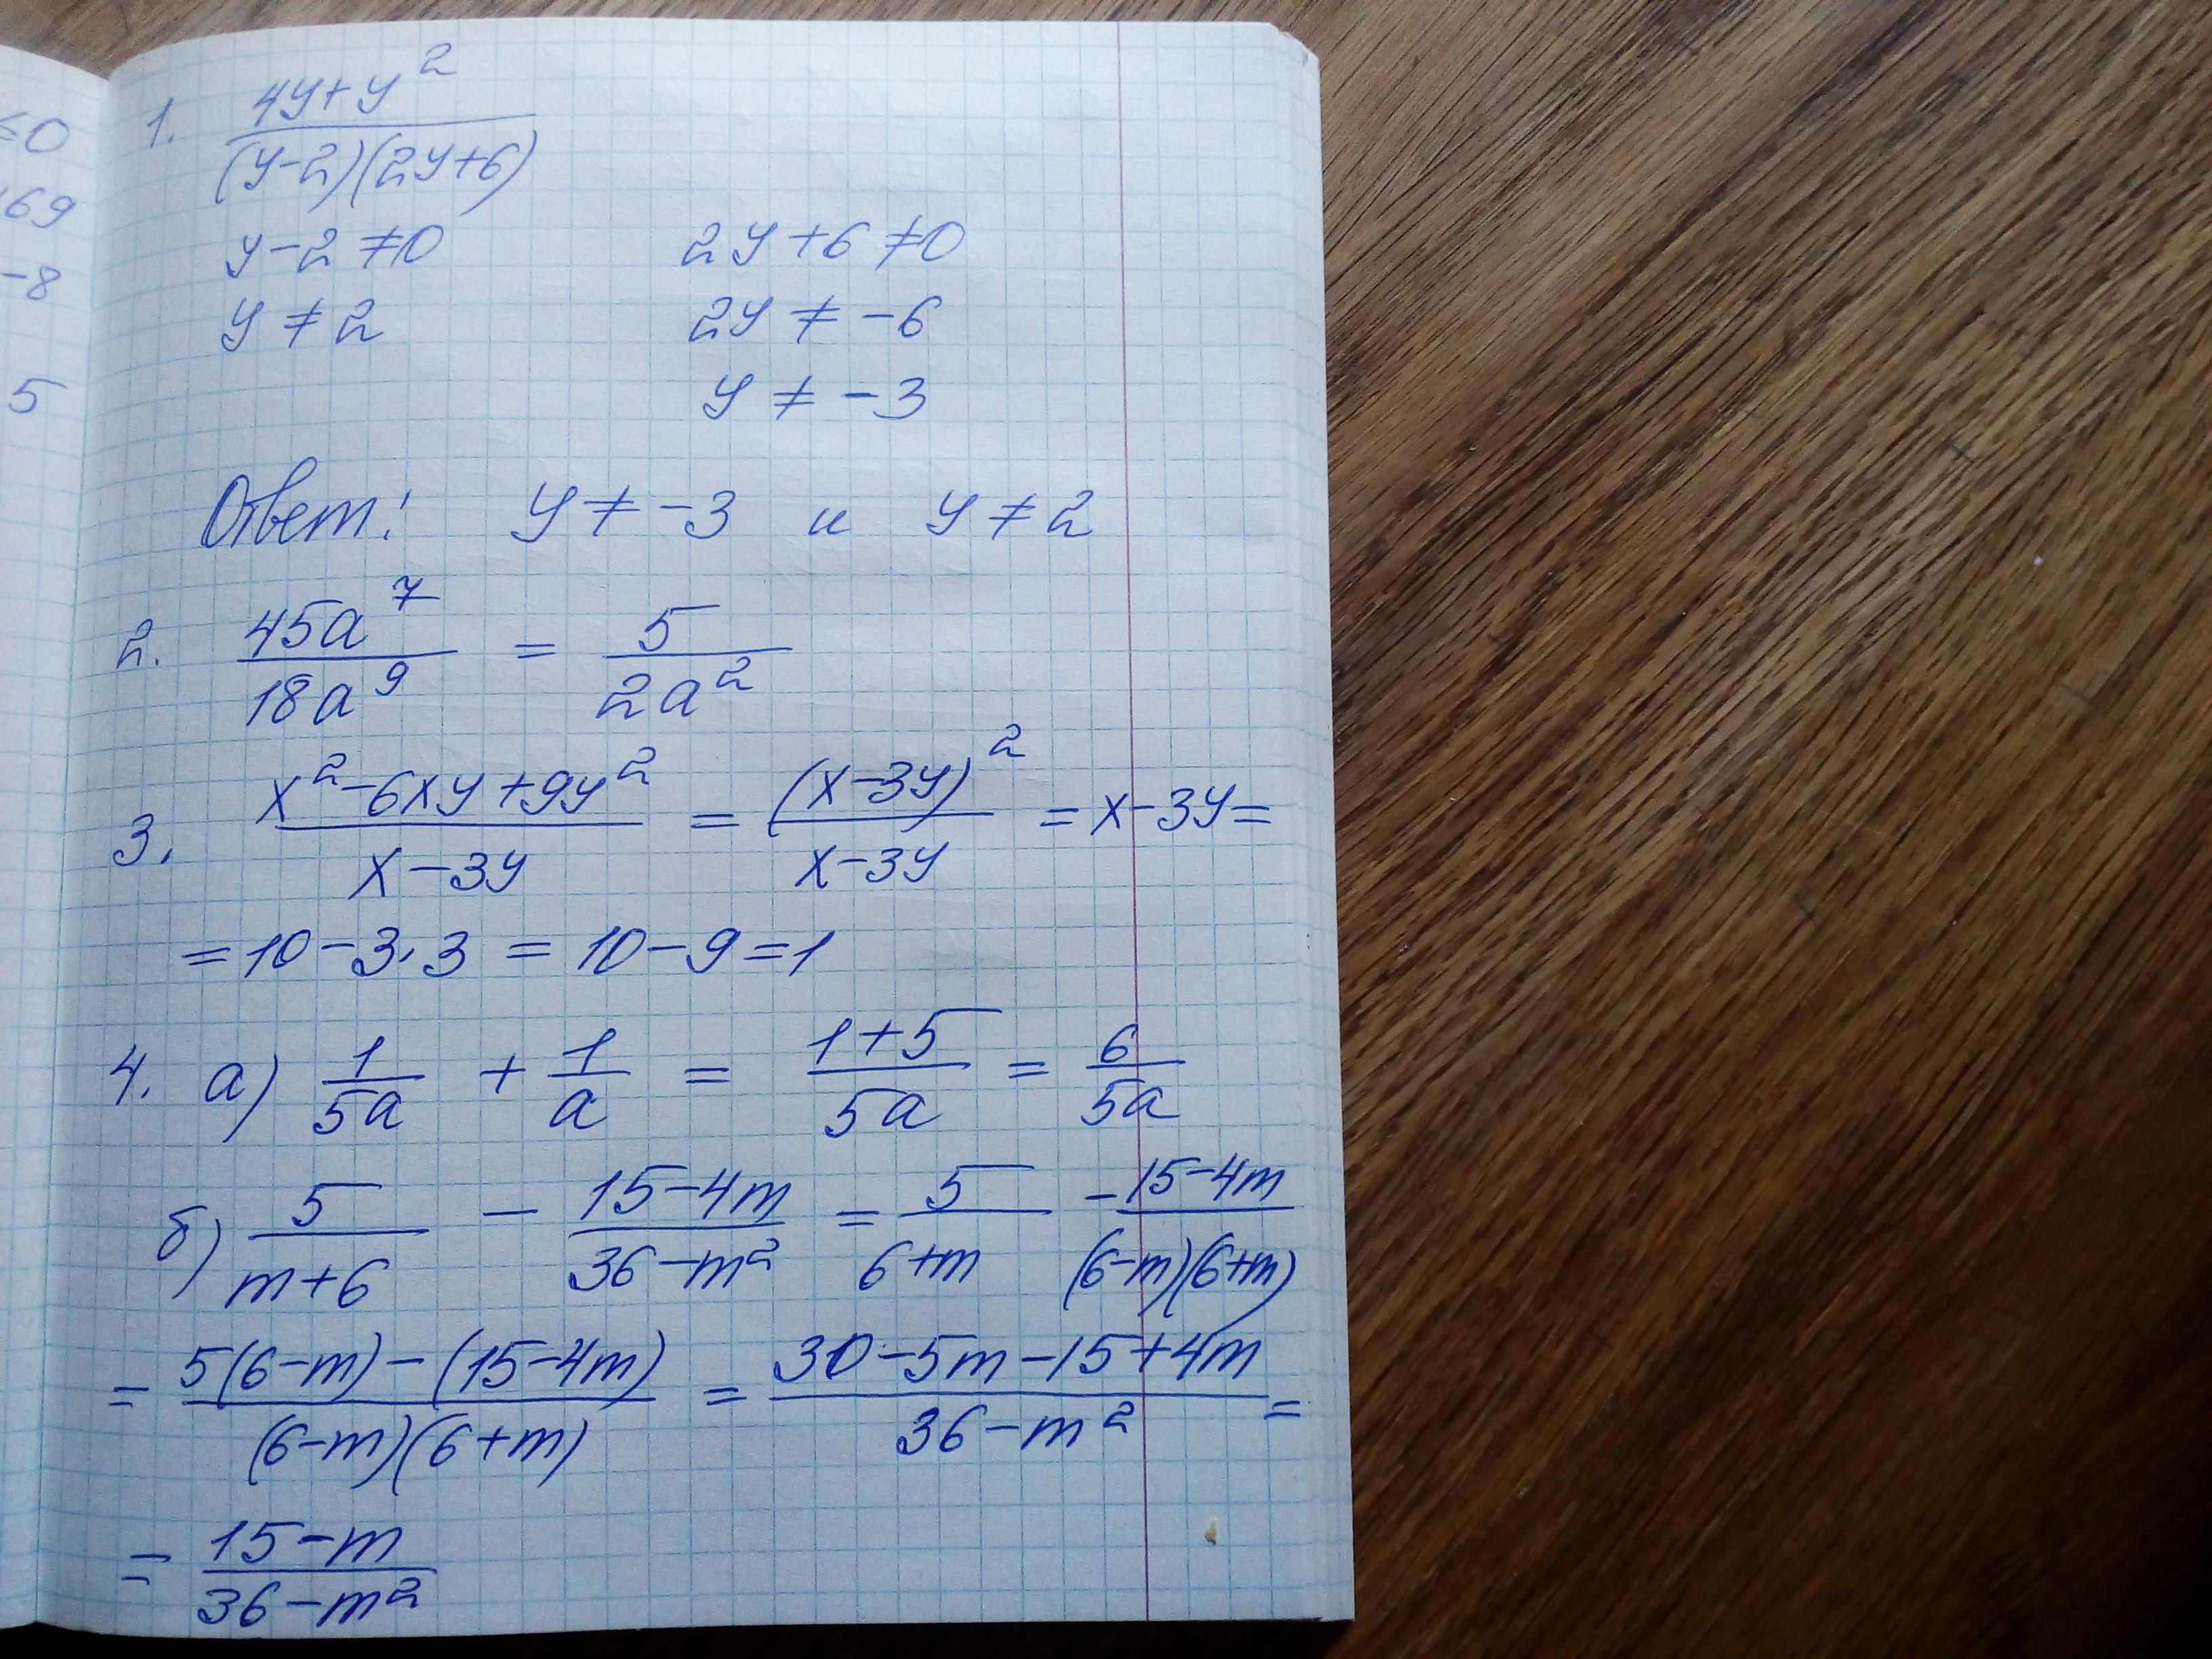 ≤0
169
-8
5
1. (4y+y²)/((y-2)(2y+6))
y-2≠0 2y+6≠0
y≠2 2y≠-6
y≠-3
Ответ: y≠-3 и y≠2
2. 45a⁷/18a⁹ = 5/2a²
3. (x²-6xy+9y²)/(x-3y) = (x-3y)²/(x-3y) = x-3y=
=10-3·3=10-9=1
4. а) 1/5a + 1/a = (1+5)/5a = 6/5a
б) 5/(m+6) - (15-4m)/(36-m²) = 5/(6+m) - (15-4m)/((6-m)(6+m))
= (5(6-m)-(15-4m))/((6-m)(6+m)) = (30-5m-15+4m)/(36-m²) =
= (15-m)/(36-m²)